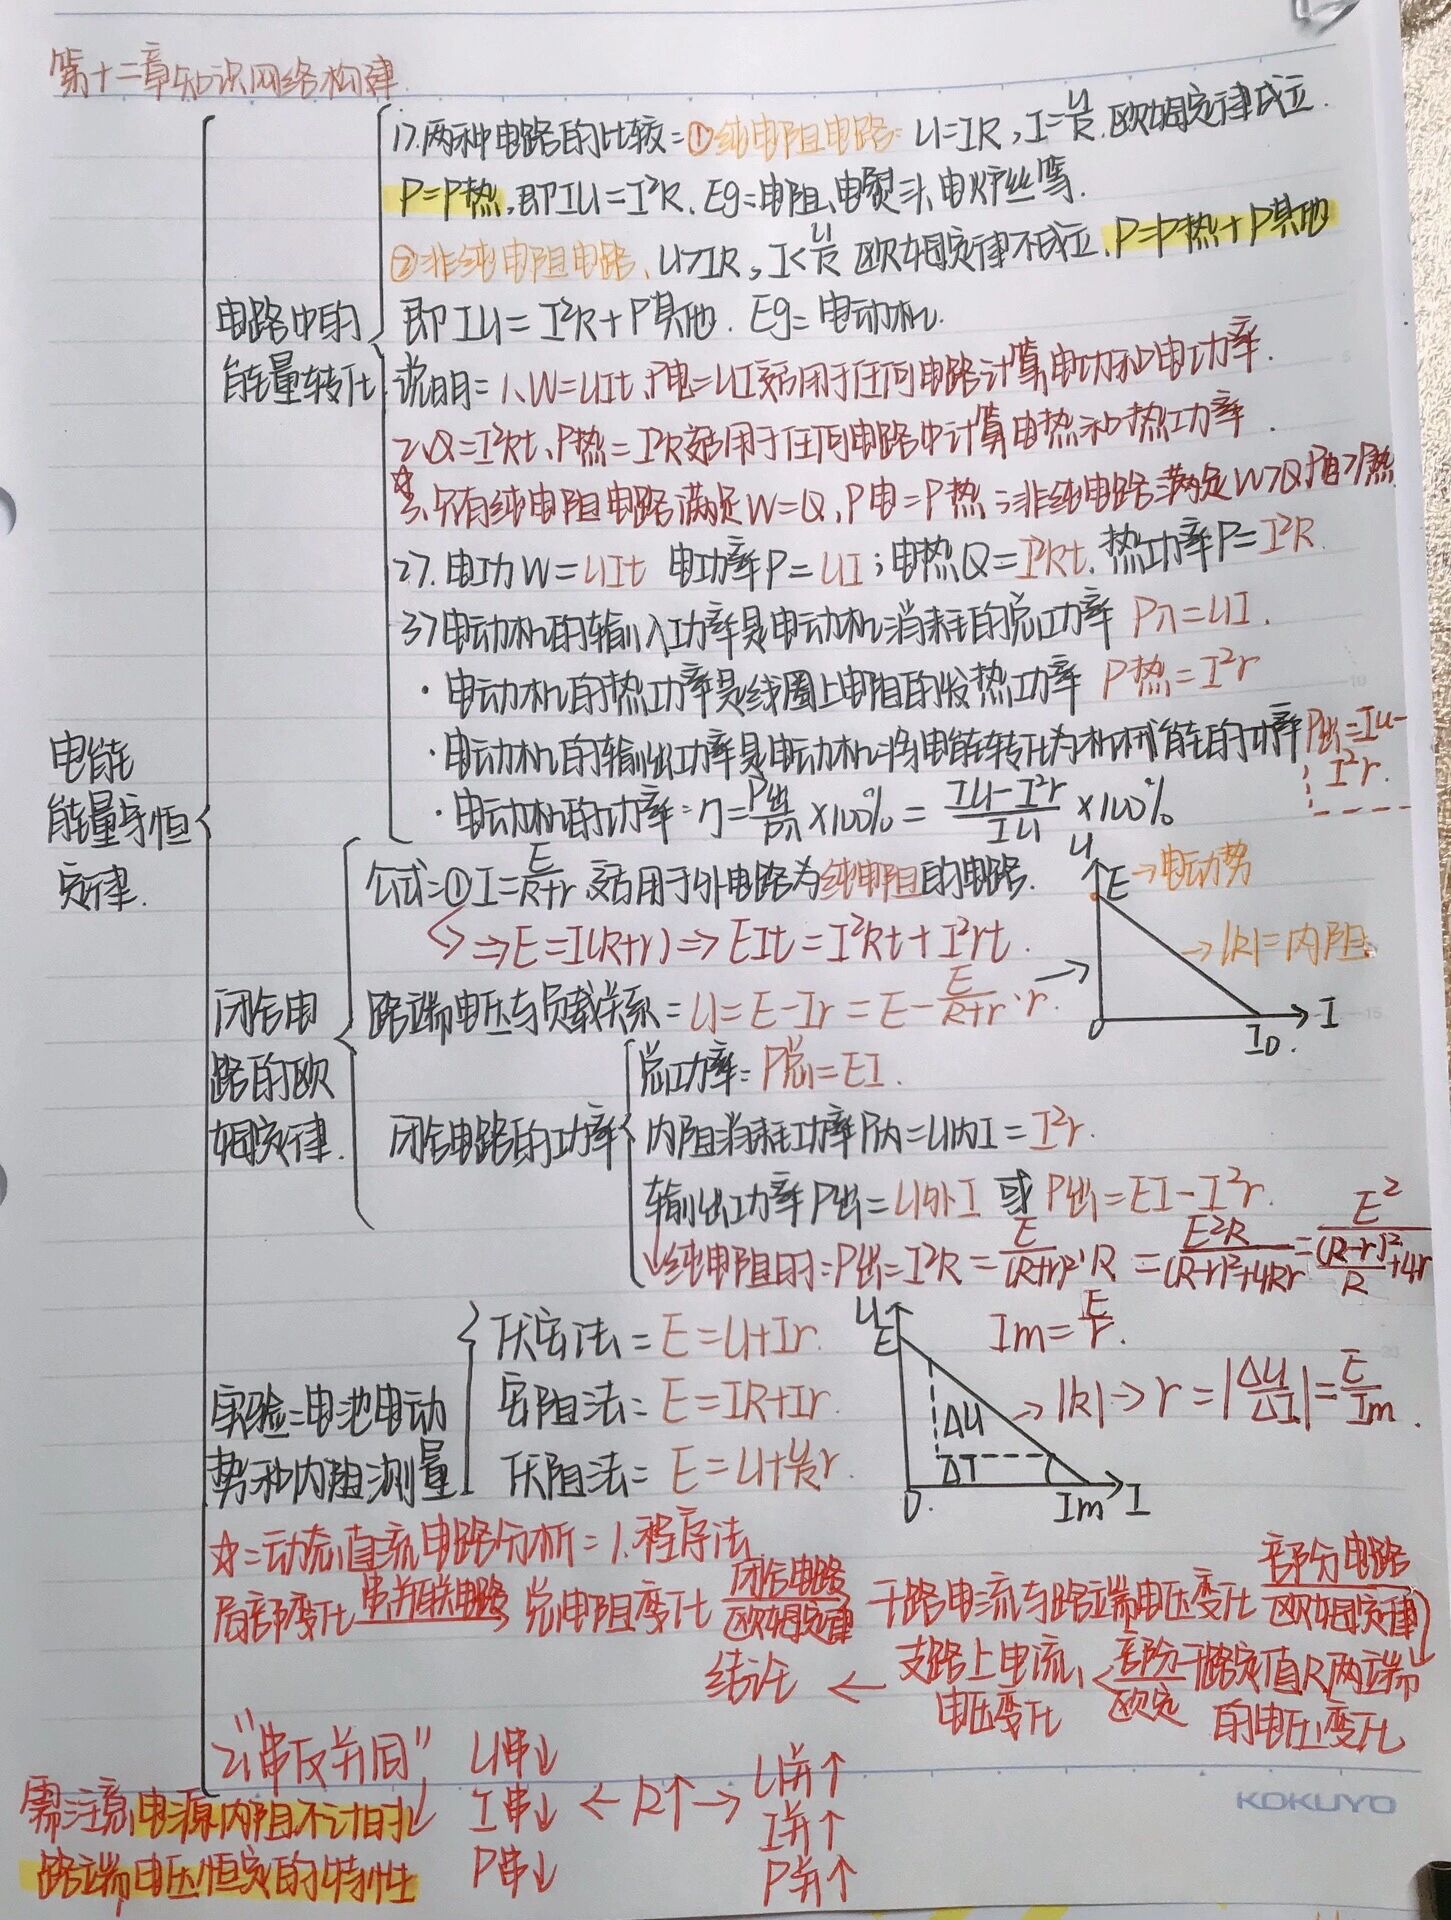 第十二章知识网络构建
电能
能量守恒
定律.
电路中的
能量转化
1>.两种电路的比较=①纯电阻电路: U=IR,I=U/R.欧姆定律成立.
P=P热,即IU=I²R. Eg=电阻、电熨斗、电炉丝等.
②非纯电阻电路、U>IR,I<U/R 欧姆定律不成立.P=P热+P其他
即IU=I²R+P其他. Eg=电动机.
说明=1、W=UIt、P电=UI适用于任何电路计算电功和电功率.
2、Q=I²Rt、P热=I²R适用于任何电路中计算电热和热功率.
☆3、只有纯电阻电路满足W=Q,P电=P热;非纯电路满足W>Q,P电>P热
2>.电功W=UIt 电功率P=UI;电热Q=I²Rt.热功率P=I²R.
3>电动机的输入功率是电动机消耗的总功率 P入=UI.
·电动机的热功率是线圈上电阻的发热功率 P热=I²r
·电动机的输出功率是电动机将电能转化为机械能的功率P出=IU-
I²r.
·电动机的功率:η=P出/P入×100%=IU-I²r/IU×100%
闭合电
路的欧
姆定律.
公式=①I=E/R+r,适用于外电路为纯电阻的电路.
⇒E=I(R+r)⇒EIt=I²Rt+I²rt.
路端电压与负载关系=U=E-Ir=E-E/R+r·r. →
U
E→电动势
→|k|=内阻
0
I0.
I
闭合电路的功率
总功率:P总=EI.
内阻消耗功率P内=U内I=I²r.
输出功率P出=U外I 或 P出=EI-I²r.
↓纯电阻时:P出=I²R=E/(R+r)²·R=E²R/(R-r)²+4Rr=E²/(R-r)²/R+4r
实验=电池电动
势和内阻测量
伏安法=E=U+Ir.
安阻法=E=IR+Ir.
伏阻法=E=U+U/R r.
U
E
ΔU
ΔI
0.
Im
I
Im=E/r.
→|k|→r=|ΔU/ΔI|=E/Im.
☆=动态直流电路分析=1.程序法
局部变化 串并联电路→ 总电阻变化 闭合电路/欧姆定律 干路电流与路端电压变化 部分电路/欧姆定律
结论 ← 支路上电流、电压变化 ← 部分/欧定 干路定值R两端的电压变化
2、"串反并同"
U串↓
I串↓ ← R↑ →
P串↓
U并↑
I并↑
P并↑
需注意,电源内阻不计时
路端电压恒定的特性
KOKUYO